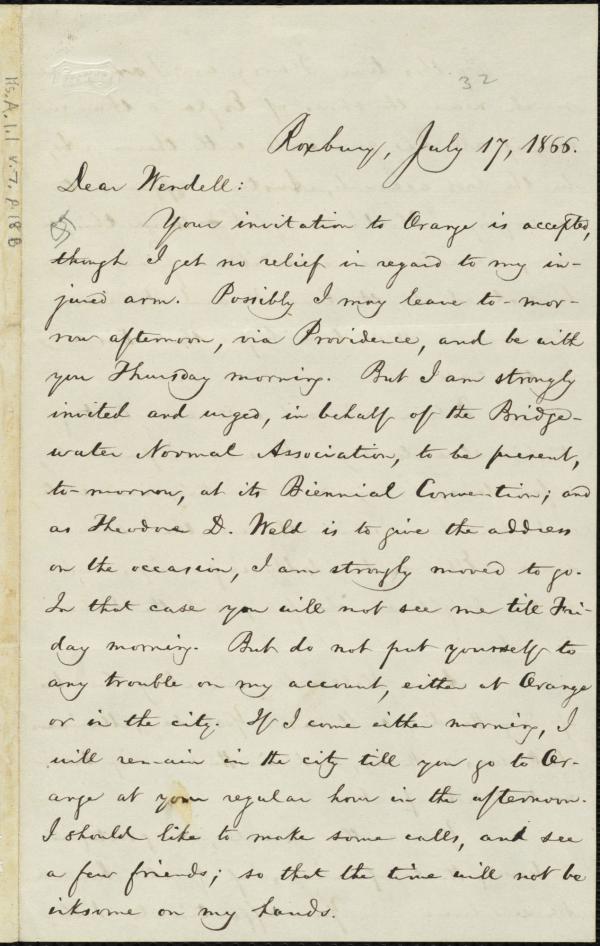 32
Roxbury, July 17, 1866.
Dear Wendell:
Your invitation to Orange is accepted,
though I get no relief in regard to my in-
jured arm. Possibly I may leave to-mor-
row afternoon, via Providence, and be with
you Thursday morning. But I am strongly
invited and urged, in behalf of the Bridge-
water Normal Association, to be present,
to-morrow, at its Biennial Convention; and
as Theodore D. Weld is to give the address
on the occasion, I am strongly moved to go.
In that case you will not see me till Fri-
day morning. But do not put yourself to
any trouble on my account, either at Orange
or in the city. If I come either morning, I
will remain in the city till you go to Or-
ange at your regular hour in the afternoon.
I should like to make some calls, and see
a few friends; so that the time will not be
irksome on my hands.
Ms. A. 1.1 v. 7, p. 18 B